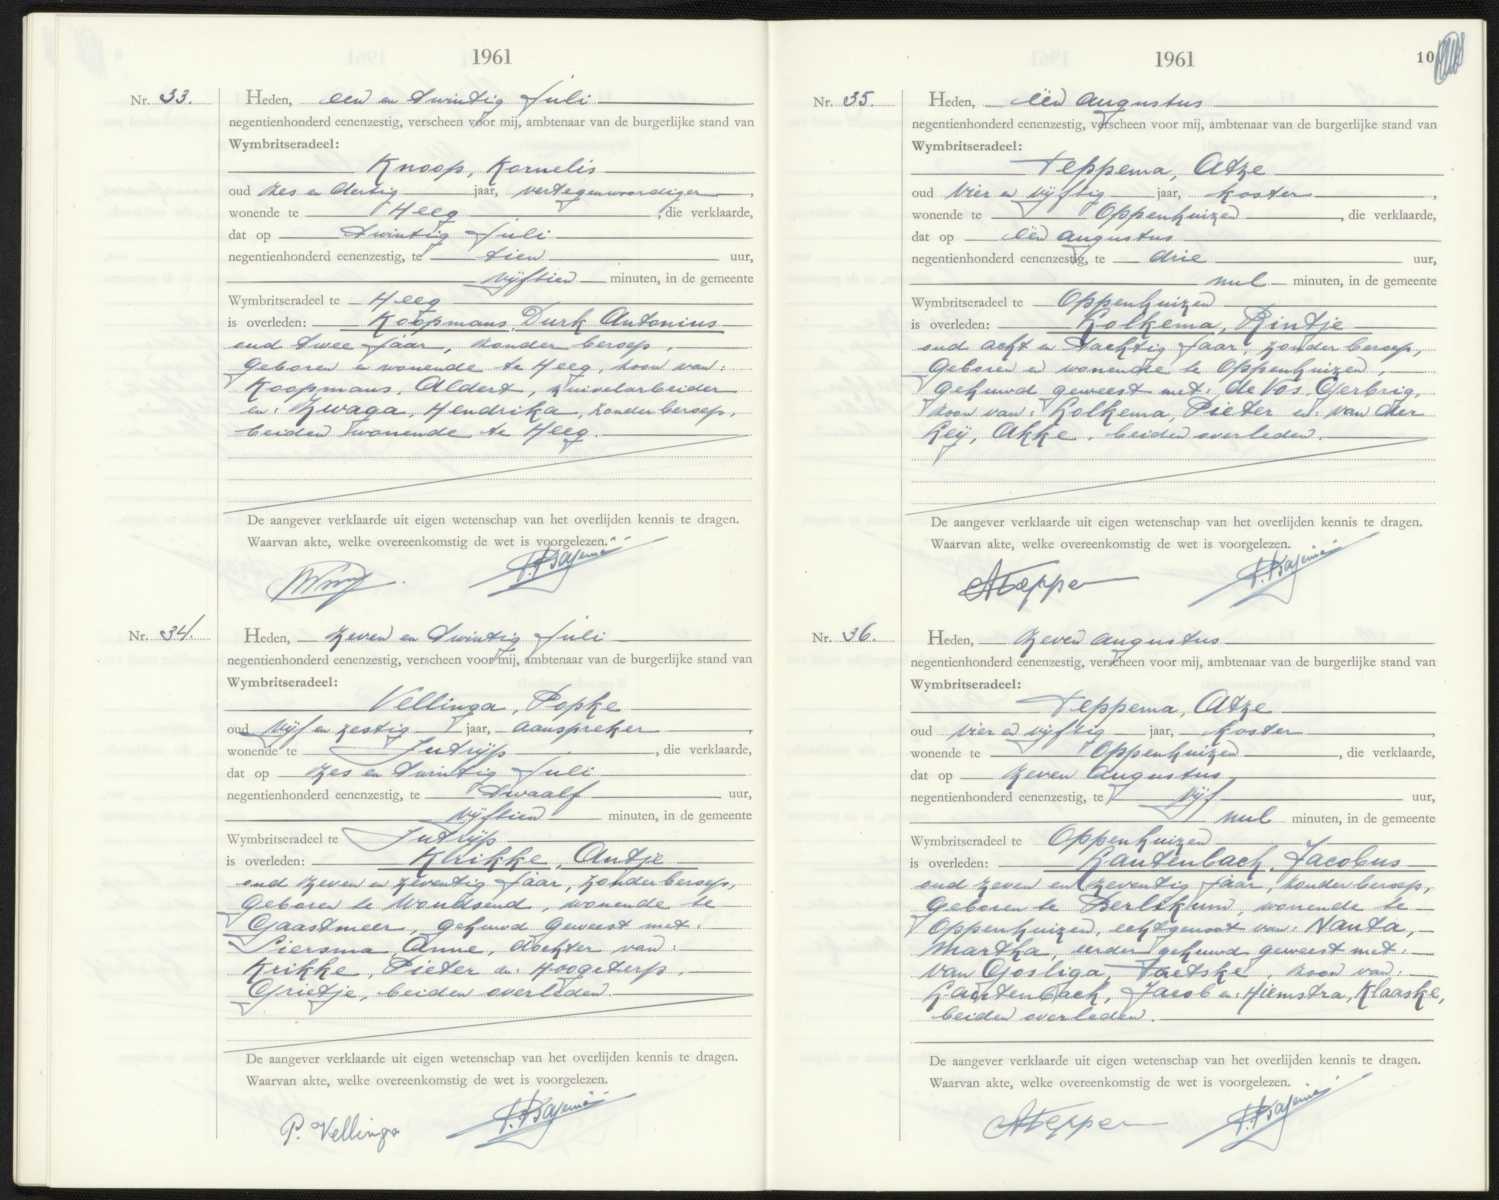 1961
Nr. 33. Heden, een en twintig Juli
negentienhonderd eenenzestig, verscheen voor mij, ambtenaar van de burgerlijke stand van
Wymbritseradeel:
Knoop, Kornelis
oud zes en dertig jaar, vertegenwoordiger,
wonende te Heeg, die verklaarde,
dat op twintig Juli
negentienhonderd eenenzestig, te tien uur,
vijftien minuten, in de gemeente
Wymbritseradeel te Heeg
is overleden: Koopmans, Durk Antonius
oud twee jaar, zonder beroep,
geboren en wonende te Heeg, zoon van:
Koopmans, Aldert, zuivelarbeider
en: Zwaga, Hendrika, zonder beroep,
beiden wonende te Heeg.
De aangever verklaarde uit eigen wetenschap van het overlijden kennis te dragen.
Waarvan akte, welke overeenkomstig de wet is voorgelezen.
Nr. 34. Heden, zeven en twintig Juli
negentienhonderd eenenzestig, verscheen voor mij, ambtenaar van de burgerlijke stand van
Wymbritseradeel:
Vellinga, Popke
oud vijf en zestig jaar, aanspreker,
wonende te Jutrijp, die verklaarde,
dat op zes en twintig Juli
negentienhonderd eenenzestig, te twaalf uur,
vijftien minuten, in de gemeente
Wymbritseradeel te Jutrijp
is overleden: Krikke, Antje
oud zeven en zeventig jaar, zonder beroep,
geboren te Woudsend, wonende te
Gaastmeer, gehuwd geweest met:
Siersma, Anne, dochter van:
Krikke, Pieter en: Hoogeterp,
Grietje, beiden overleden.
De aangever verklaarde uit eigen wetenschap van het overlijden kennis te dragen.
Waarvan akte, welke overeenkomstig de wet is voorgelezen.
P. Vellinga
1961
10
Nr. 35. Heden, één augustus
negentienhonderd eenenzestig, verscheen voor mij, ambtenaar van de burgerlijke stand van
Wymbritseradeel:
Teppema, Atze
oud vier en vijftig jaar, koster,
wonende te Oppenhuizen, die verklaarde,
dat op één augustus
negentienhonderd eenenzestig, te drie uur,
nul minuten, in de gemeente
Wymbritseradeel te Oppenhuizen
is overleden: Kolkema, Rintje
oud acht en tachtig jaar, zonder beroep,
geboren en wonende te Oppenhuizen,
gehuwd geweest met: de Vos, Gerbrig,
zoon van: Kolkema, Pieter en: van der
Leij, Akke, beiden overleden.
De aangever verklaarde uit eigen wetenschap van het overlijden kennis te dragen.
Waarvan akte, welke overeenkomstig de wet is voorgelezen.
Nr. 36. Heden, zeven augustus
negentienhonderd eenenzestig, verscheen voor mij, ambtenaar van de burgerlijke stand van
Wymbritseradeel:
Teppema, Atze
oud vier en vijftig jaar, koster
wonende te Oppenhuizen, die verklaarde,
dat op zeven augustus,
negentienhonderd eenenzestig, te vijf uur,
nul minuten, in de gemeente
Wymbritseradeel te Oppenhuizen
is overleden: Lautenbach, Jacobus
oud zeven en zeventig jaar, zonder beroep,
geboren te Berlikum, wonende te
Oppenhuizen, echtgenoot van: Nauta,
Martha, eerder gehuwd geweest met:
van Gosliga, Taetske, zoon van:
Lautenbach, Jacob en: Hiemstra, Klaaske,
beiden overleden.
De aangever verklaarde uit eigen wetenschap van het overlijden kennis te dragen.
Waarvan akte, welke overeenkomstig de wet is voorgelezen.